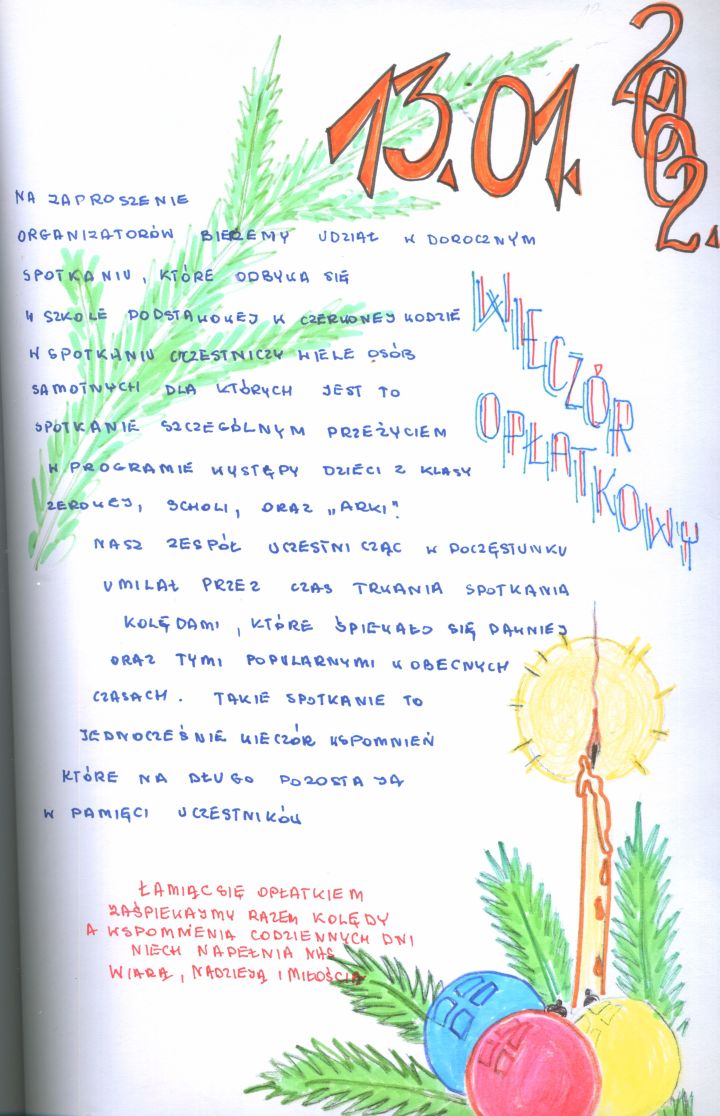 13.01.
2002.
NA ZAPROSZENIE
ORGANIZATORÓW BIERZEMY UDZIAŁ W DOROCZNYM
SPOTKANIU, KTÓRE ODBYWA SIĘ
W SZKOLE PODSTAWOWEJ W CZERWONEJ WODZIE
W SPOTKANIU UCZESTNICZY WIELE OSÓB
SAMOTNYCH DLA KTÓRYCH JEST TO
SPOTKANIE SZCZEGÓLNYM PRZEŻYCIEM
W PROGRAMIE WYSTĘPY DZIECI Z KLASY
ZEROWEJ, SCHOLI, ORAZ „ARKI".
NASZ ZESPÓŁ UCZESTNICZĄC W POCZĘSTUNKU
UMILAŁ PRZEZ CZAS TRWANIA SPOTKANIA
KOLĘDAMI, KTÓRE ŚPIEWAŁO SIĘ DAWNIEJ
ORAZ TYMI POPULARNYMI W OBECNYCH
CZASACH. TAKIE SPOTKANIE TO
JEDNOCZEŚNIE WIECZÓR WSPOMNIEŃ
KTÓRE NA DŁUGO POZOSTAJĄ
W PAMIĘCI UCZESTNIKÓW
WIECZÓR
OPŁATKOWY
ŁAMIĄC SIĘ OPŁATKIEM
ZAŚPIEWAJMY RAZEM KOLĘDY
A WSPOMNIENIA CODZIENNYCH DNI
NIECH NAPEŁNIA NAS
WIARĄ, NADZIEJĄ I MIŁOŚCIĄ